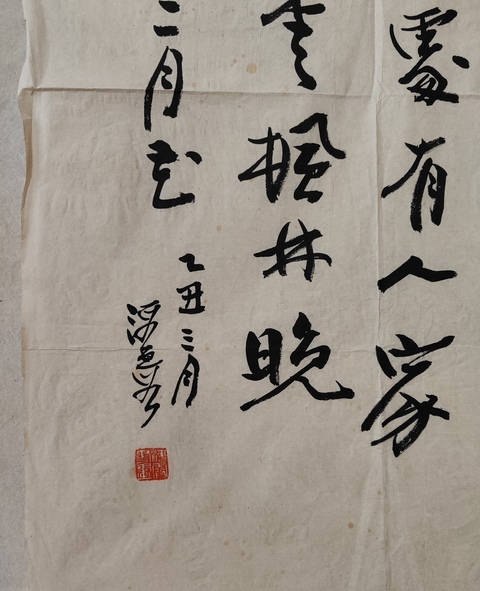 處有人家
楓林晚
二月花
乙丑三月